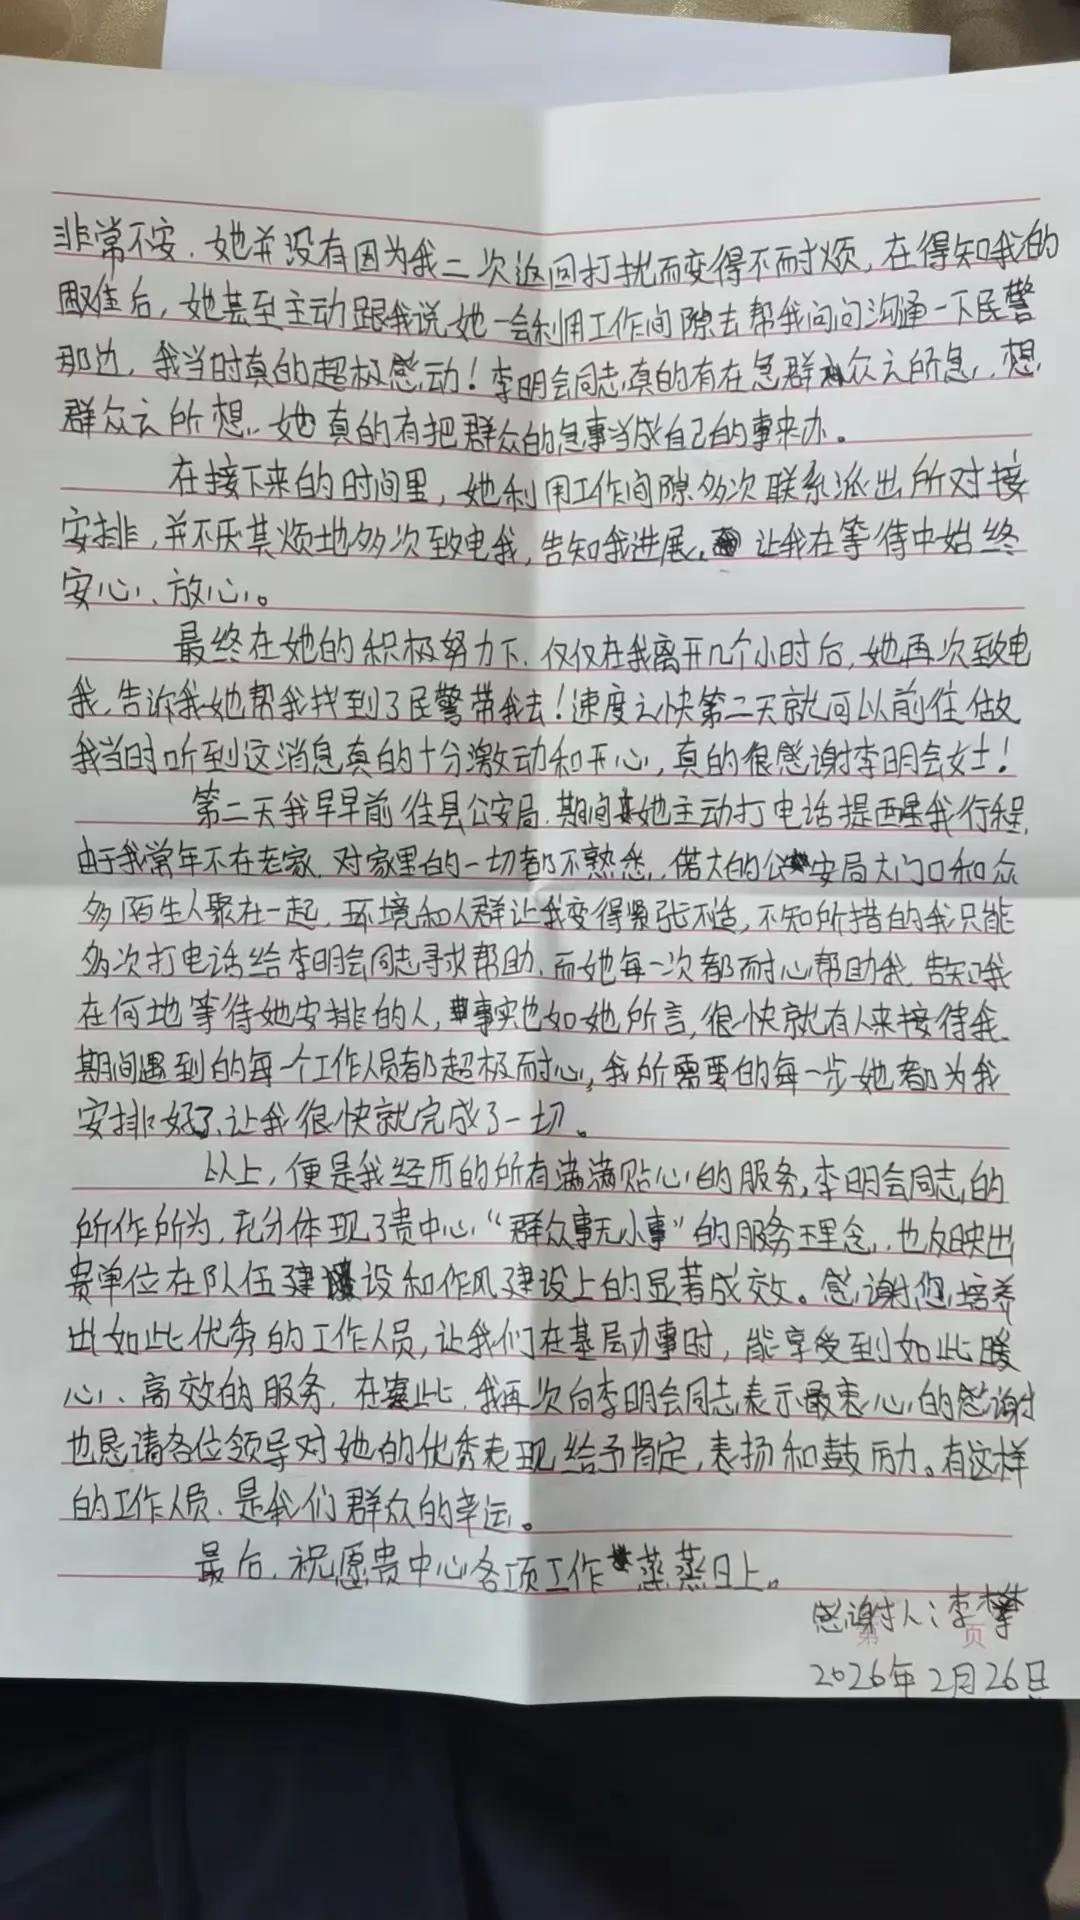 非常不安。她并没有因为我二次返回打扰而变得不耐烦，在得知我的
困难后，她甚至主动跟我说她一会利用工作间隙去帮我问问沟通一下民警
那边，我当时真的超极感动！李明会同志真的有在急群众之所急，想
群众之所想，她真的有把群众的急事当成自己的事来办。
在接下来的时间里，她利用工作间隙多次联系派出所对接
安排，并不厌其烦地多次致电我，告知我进展，让我在等待中始终
安心、放心。
最终在她的积极努力下，仅仅在我离开几个小时后，她再次致电
我，告诉我她帮我找到了民警带我去！速度之快第二天就可以前往做
我当时听到这消息真的十分激动和开心，真的很感谢李明会女士！
第二天我早早前往县公安局，期间她主动打电话提醒我行程，
由于我常年不在老家，对家里的一切都不熟悉，偌大的公安局大门口和众
多陌生人聚在一起，环境和人群让我变得紧张不适，不知所措的我只能
多次打电话给李明会同志寻求帮助，而她每一次都耐心帮助我，告知我
在何地等待她安排的人，事实也如她所言，很快就有人来接待我。
期间遇到的每一个工作人员都超极耐心，我所需要的每一步她都为我
安排好了，让我很快就完成了一切。
以上，便是我经历的所有满满贴心的服务，李明会同志的
所作所为，充分体现了贵中心“群众事无小事”的服务理念，也反映出
贵单位在队伍建设和作风建设上的显著成效。感谢您培养
出如此优秀的工作人员，让我们在基层办事时，能享受到如此暖
心、高效的服务，在此，我再次向李明会同志表示最衷心的感谢
也恳请各位领导对她的优秀表现给予肯定，表扬和鼓励。有这样
的工作人员，是我们群众的幸运。
最后，祝愿贵中心各项工作蒸蒸日上。
感谢人：李攀
第 页
2026年2月26日